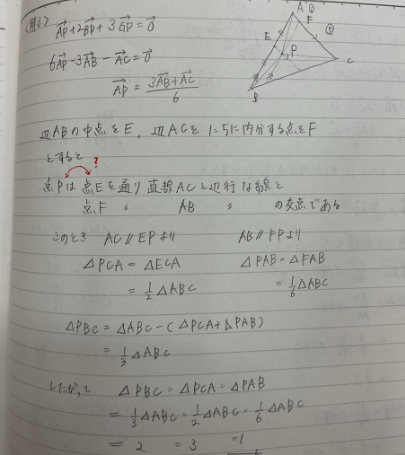 (例3.2)
AP+2BP+3CP=0
6AP-3AB-AC=0
AP=3AB+AC/6
A ① F ⑤ E P B C
辺ABの中点をE, 辺ACを1:5に内分する点をF
とすると ?
点Pは点Eを通り直線ACと平行な線と
点F 〃 AB 〃 の交点である
このとき AC//EPより AB//FPより
△PCA=△ECA △PAB=△FAB
=1/2△ABC =1/6△ABC
△PBC=△ABC-(△PCA+△PAB)
=1/3△ABC
したがって △PBC=△PCA=△PAB
=1/3△ABC=1/2△ABC=1/6△ABC
=2 =3 =1